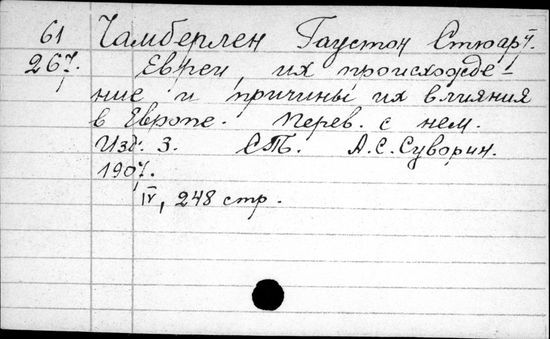 61 Чамберлен Гаустон Стюарт.
267. Евреи, их происхожде-
ние и причины их влияния
в Европе. Перев. с нем.
Изд. 3. СПб. А.С. Суворин.
1907.
IV, 248 стр.